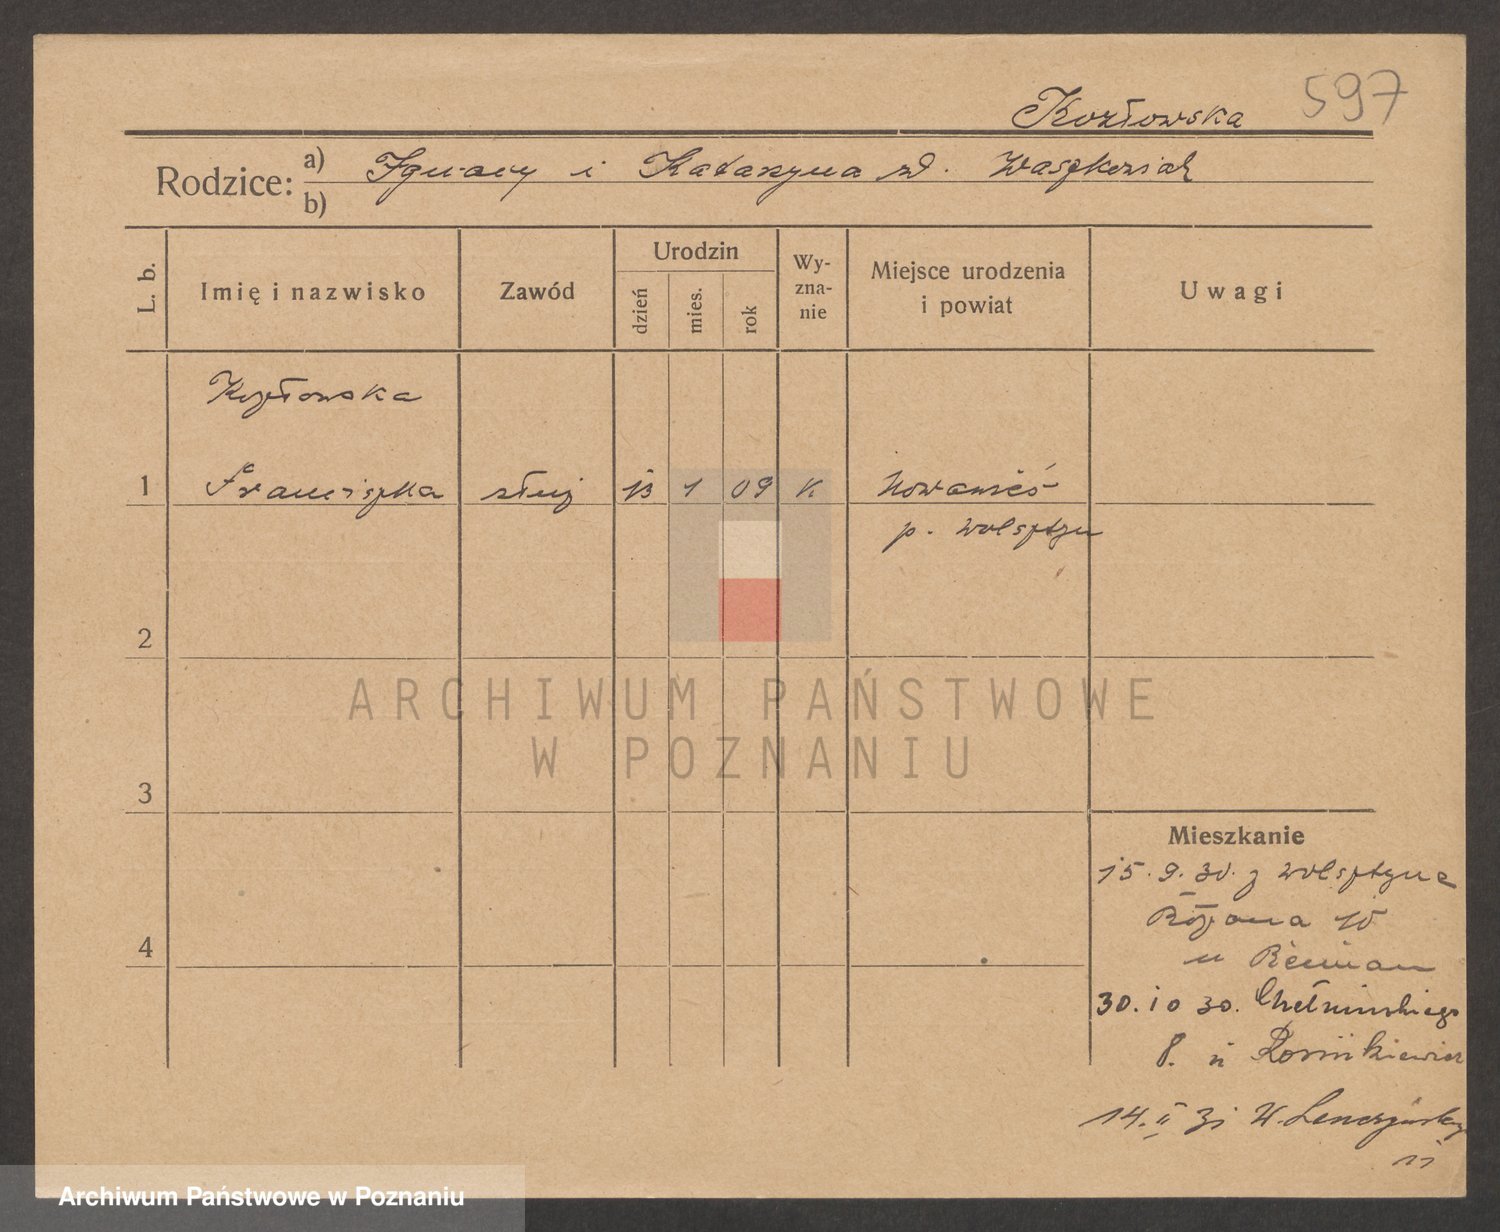 597
Kozłowska
Rodzice: a) Ignacy i Katarzyna zd. Waszkowiak
b)
L. b.
Imię i nazwisko
Zawód
Urodzin
dzień
mies.
rok
Wy-
zna-
nie
Miejsce urodzenia
i powiat
Uwagi
Kozłowska
1 Franciszka służ 13 1 09 K. Nowawieś
p. Wolsztyn
2
ARCHIWUM PAŃSTWOWE
W POZNANIU
3
Mieszkanie
15.9.30. z Wolsztyna
Różana 10
4
u
30.10 30. Chełmińskiego
8. u
14.II 31
Archiwum Państwowe w Poznaniu